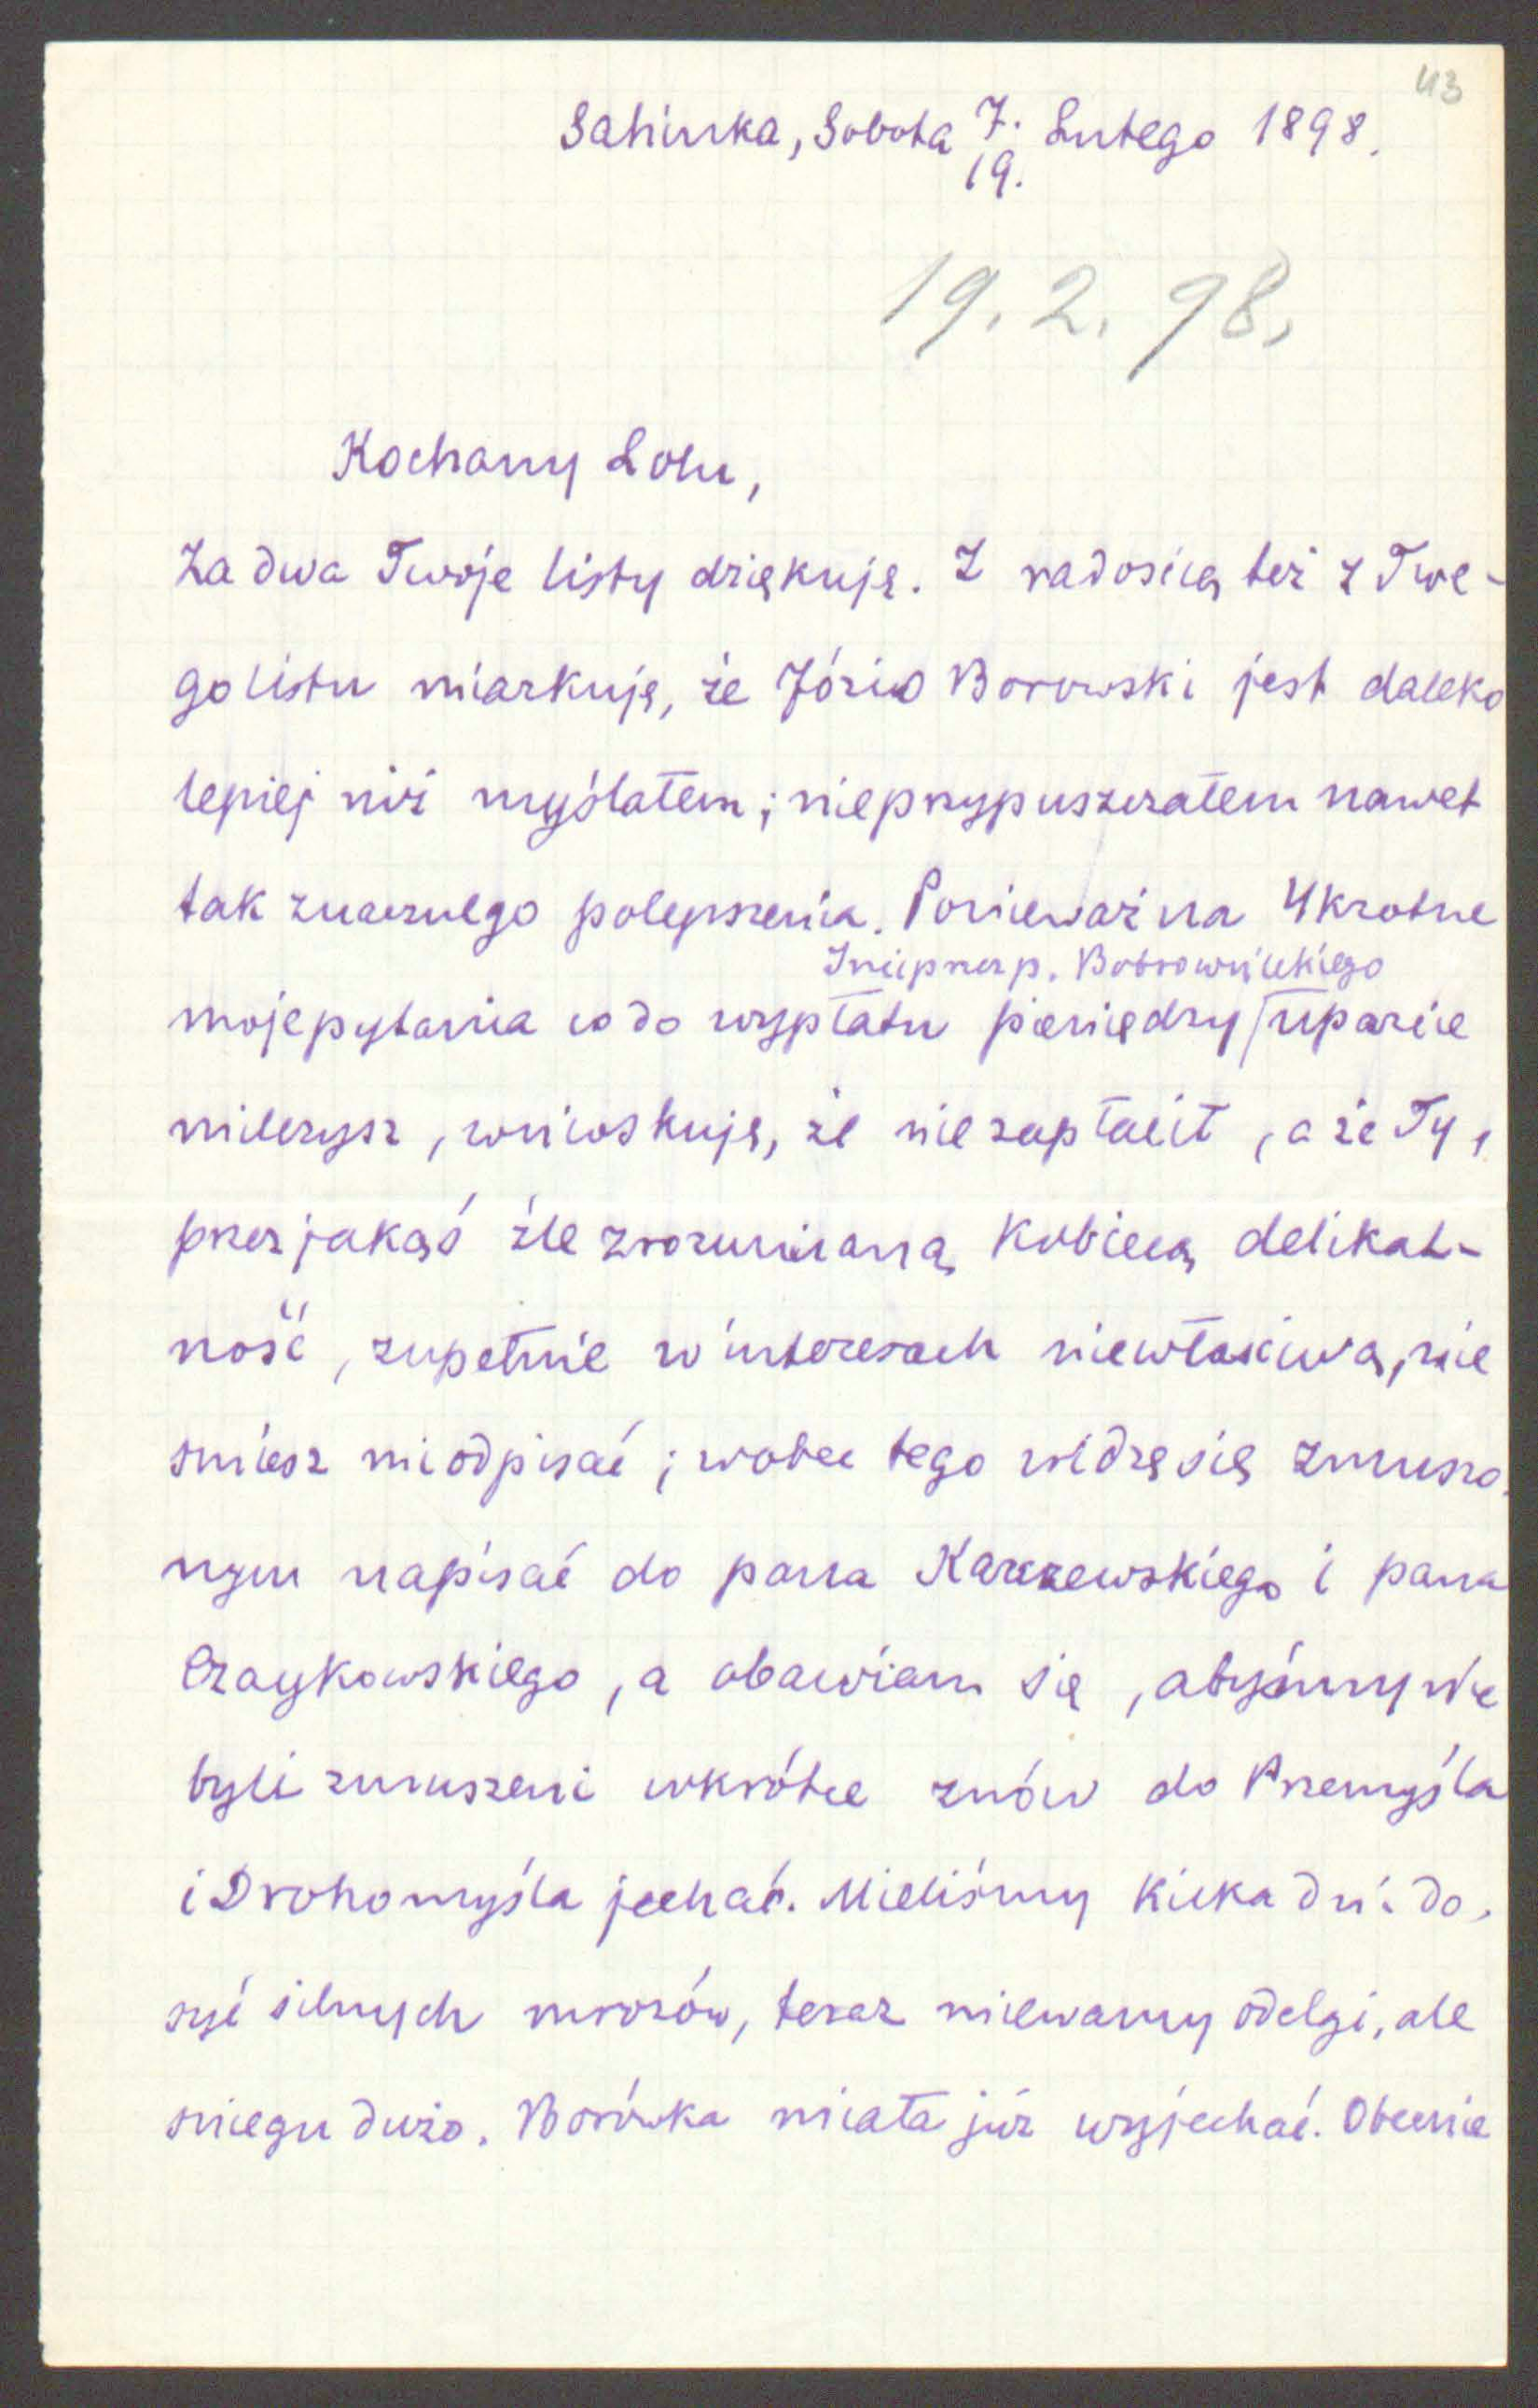 43
Sahinka, Sobota 7. Lutego 1898.
19.
19. 2. 98.
Kochany Lolu,
Za dwa Twoje listy dziękuję. Z radością też z Twe-
go listu miarkuję, że Józio Borowski jest daleko
lepiej niż myślałem; nieprzypuszczałem nawet
tak znacznego polepszenia. Ponieważ na 4krotne
Iszej przez p. Bobrownickiego
moje pytania co do wypłatu pieniędzy uparcie
milczysz, wnioskuję, że nie zapłacił, a że Ty,
przez jakąś źle zrozumianą kobiecą delikat-
ność, zupełnie w interesach niewłaściwą, nie
śmiesz mi odpisać; wobec tego widzę się zmuszo-
nym napisać do pana Karczewskiego i pana
Czaykowskiego, a obawiam się, abyśmy nie
byli zmuszeni wkrótce znów do Przemyśla
i Drohomyśla jechać. Mieliśmy kilka dni do-
syć silnych mrozów, teraz miewamy odelgi, ale
śniegu dużo. Borówka miała już wyjechać. Obecnie